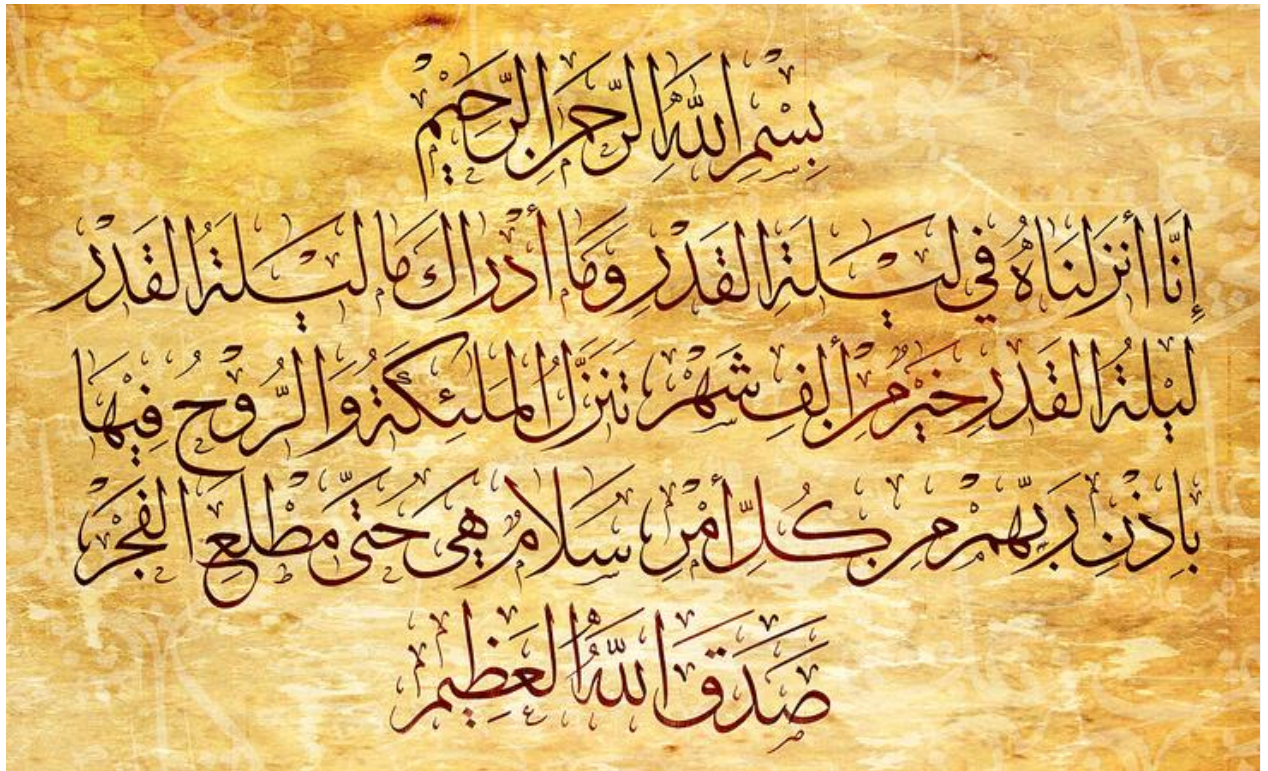 بِسْمِ اللّٰهِ الرَّحْمٰنِ الرَّحِيْمِ
إِنَّا أَنْزَلْنَاهُ فِي لَيْلَةِ الْقَدْرِ وَمَا أَدْرَاكَ مَا لَيْلَةُ الْقَدْرِ
لَيْلَةُ الْقَدْرِ خَيْرٌ مِنْ أَلْفِ شَهْرٍ تَنَزَّلُ الْمَلٰئِكَةُ وَالرُّوْحُ فِيْهَا
بِاِذْنِ رَبِّهِمْ مِنْ كُلِّ أَمْرٍ سَلَامٌ هِيَ حَتَّى مَطْلَعِ الْفَجْرِ
صَدَقَ اللّٰهُ الْعَظِيْمُ